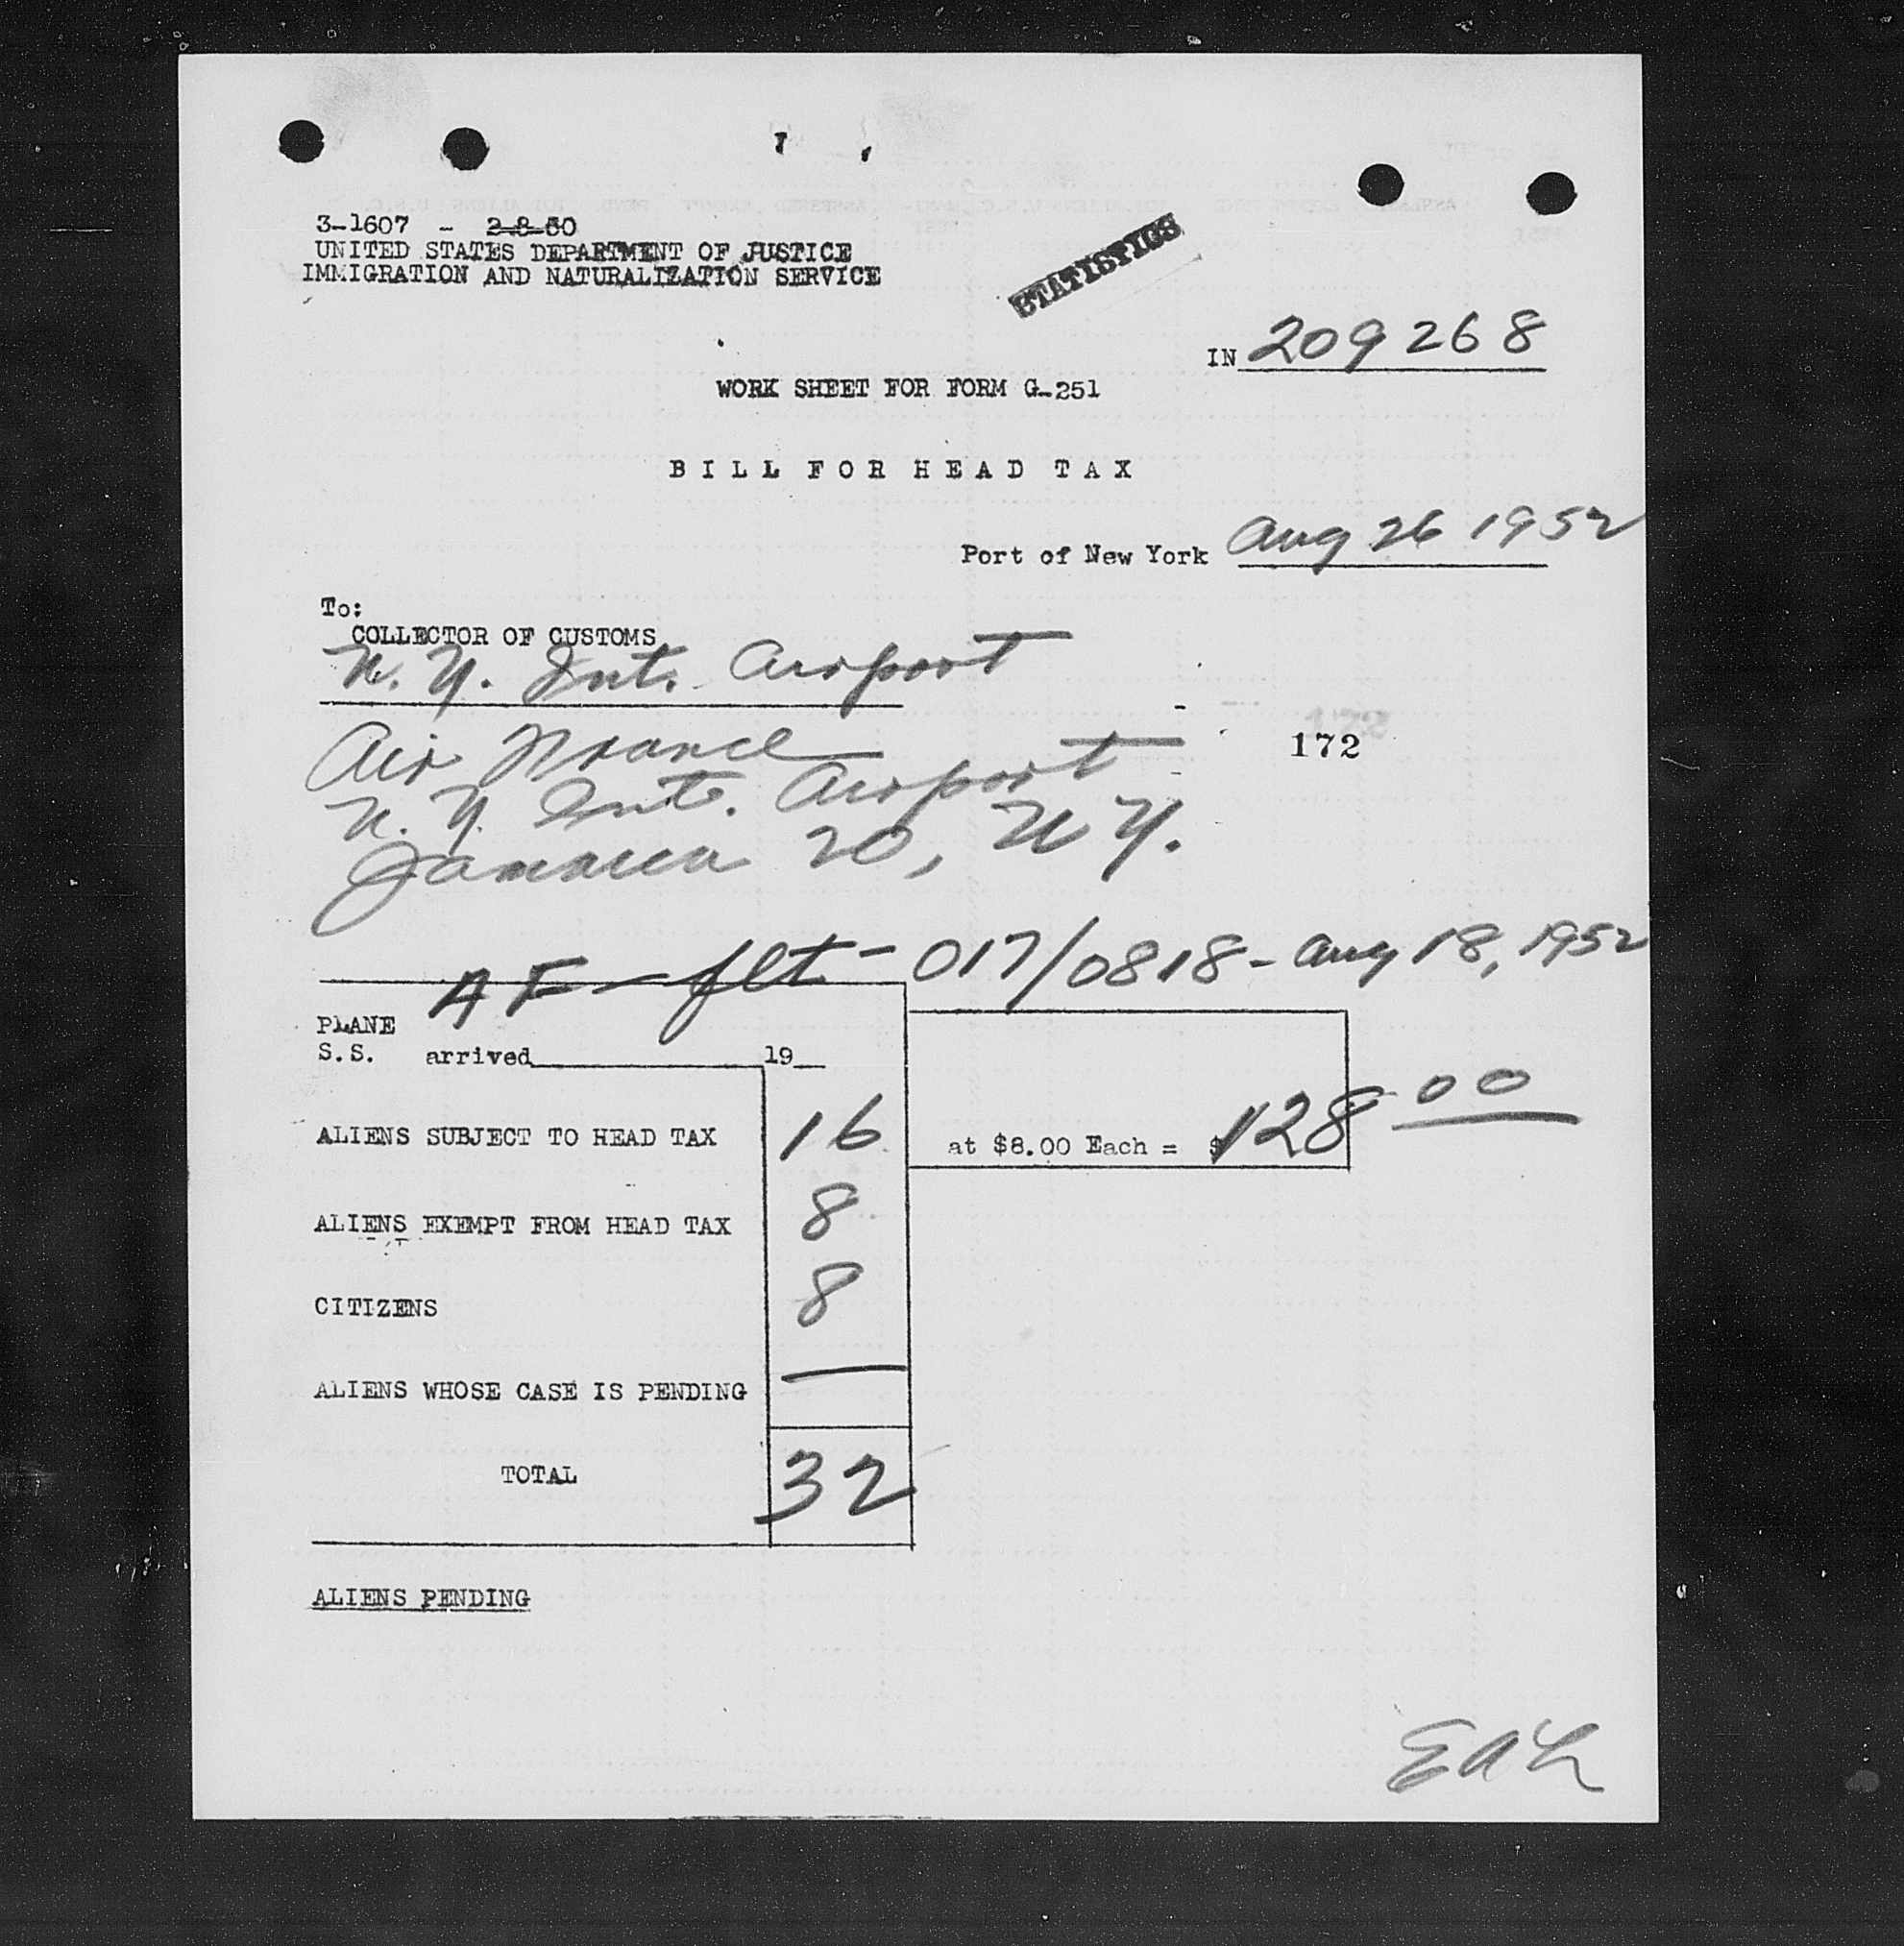 3-1607 - 2-8-50
UNITED STATES DEPARTMENT OF JUSTICE
IMMIGRATION AND NATURALIZATION SERVICE
STATISTICS
IN 209268
WORK SHEET FOR FORM G-251
BILL FOR HEAD TAX
Port of New York Aug 26 1952
To:
COLLECTOR OF CUSTOMS
N. Y. Int. Airport
Air France
172
N. Y. Int. Airport
Jamaica 20, N Y.
AF - flt - 017/0818 - Aug 18, 1952
PLANE
S.S. arrived 19
ALIENS SUBJECT TO HEAD TAX 16 at $8.00 Each = $128 00
ALIENS EXEMPT FROM HEAD TAX 8
CITIZENS 8
ALIENS WHOSE CASE IS PENDING —
TOTAL 32
ALIENS PENDING